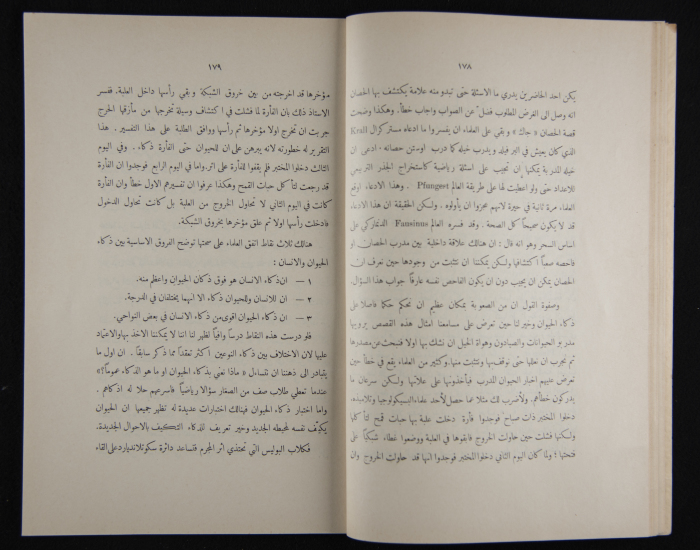 ١٧٨
يكن احد الحاضرين يدري ما الاسئلة حتى تبدو منه علامة يكتشف بها الحصان
انه وصل الى الغرض المطلوب فضل عن الصواب واجاب خطأ. وهكذا وضحت
قصة الحصان « جاك » وبقي على العلماء ان يفسروا ما ادعاه مستر كرال Krall
الذي كان يعيش في البرفيلد ويدرب خيله كما درب اوستن حصانه - ادعى ان
خيله المدربة يمكنها ان تجيب على اسئلة رياضية كاستخراج الجذر التربيعي
للاعداد حتى ولو اعطيت لها على طريقة العالم Pfungest . وهذا الادعاء اوقع
العلماء مرة ثانية في حيرة لانهم عجزوا ان يأولوه . ولكن الحقيقة ان هذا الادعاء
قد لا يكون صحيحاً كل الصحة . وقد فسره العالم Faustinus الدنماركي على
اساس السحر وهو انه قال : ان هنالك علاقة داخلية بين مدرب الحصان او
فاحصه صعباً اكتشافها ولكن يمكننا ان نتثبت من وجودها حين نعرف ان
الحصان يمكن ان يجيب دون ان يكون الفاحص نفسه عارفاً جواب هذا السؤال.
وصفوة القول ان من الصعوبة بمكان عظيم ان نحكم حكما فاصلا على
ذكاء الحيوان وخير لنا حين تعرض على مسامعنا امثال هذه القصص يرويها
مدربو الحيوانات والصيادون وهواة الخيل ان نشك بها اولا فنبحث عن مصدرها
ثم نجرب ان نعللها حتى نوقف بينها ونتثبت منها. وكثير من العلماء يقع في خطأ حين
تعرض عليهم اخبار الحيوان المدرب فيأخذونها على علاتها ولكن سرعان ما
يدركون خطأهم. ولأضرب لك مثلا عما حصل لأحد علماء السيكولوجيا وتلاميذه.
دخلوا المختبر ذات صباح فوجدوا فأرة دخلت علبة بها حبات قمح لتأكلها
ولكنها فشلت حين حاولت الخروج فابقوها في العلبة ووضعوا غطاء شبكياً على
فتحتها ؛ ولما كان اليوم الثاني دخلوا المختبر فوجدوا انها قد حاولت الخروج وان
١٧٩
مؤخرها قد اخرجته من بين خروق الشبكة وبقي رأسها داخل العلبة. ففسر
الاستاذ ذلك بان الفأرة لما فشلت في اكتشاف وسيلة تخرجها من مأزقها الحرج
جربت ان تخرج اولا مؤخرها ثم رأسها ووافق الطلبة على هذا التفسير . هذا
التقرير له خطورته لانه يبرهن على ان للحيوان حتى الفأرة ذكاء . وفي اليوم
الثالث دخلوا المختبر فلم يقفوا للفأرة على اثر. واما في اليوم الرابع فوجدوا ان الفأرة
قد رجعت لتأكل حبات القمح وهكذا عرفوا ان تفسيرهم الاول خطأ وان الفأرة
كانت في اليوم الثاني لا تحاول الخروج من العلبة بل كانت تحاول الدخول
فادخلت رأسها اولا ثم علق مؤخرها بخروق الشبكة.
هنالك ثلاث نقاط اتفق العلماء على صحتها توضح الفروق الاساسية بين ذكاء
الحيوان والانسان :
١ — ان ذكاء الانسان هو فوق ذكاء الحيوان واعظم منه.
٢ — ان للانسان وللحيوان ذكاء الا انهما يختلفان في الدرجة.
٣ — ان ذكاء الحيوان اقوى من ذكاء الانسان في بعض النواحي.
فلو درست هذه النقاط درساً وافياً لظهر لنا اننا لا يمكننا الاخذ بها والاعتماد
عليها لان الاختلاف بين ذكاء النوعين اكثر تعقداً مما ذكر سابقاً . ان اول ما
يتبادر الى ذهننا ان نتساءل « ماذا نعني بذكاء الحيوان او ما هو الذكاء عموماً؟»
عندما تعطي طلاب صف من الصغار سؤالا رياضياً فاسرعهم حلا له اذكاهم .
واما اختبار ذكاء الحيوان فهنالك اختبارات عديدة له تظهر جميعها ان الحيوان
يكيّف نفسه لمحيطه الجديد وخير تعريف للذكاء التكيف بالاحوال الجديدة.
فكلاب البوليس التي تحتذي اثر المجرم فتساعد دائرة سكوتلانديارد على القاء